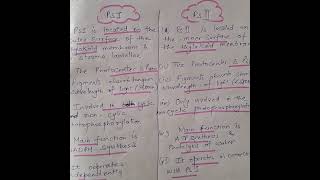 PS I
PSI is located on the
outer surface of the
thylakoid membrane &
stroma lamellae.
The Photocenter is P700
Pigments absorb longer
wavelength of
Involved in both cyclic
and non-cyclic
photophosphorylation
Main function is
NADPH synthesis
It operates
independently
PS II
PSII is located on
the inner surface of
the thylakoid membrane
The Photocenter is
Pigments absorb
wavelength of
Only involved in the
Main function is
ATP synthesis &
of water
It operates in connect
with PS I